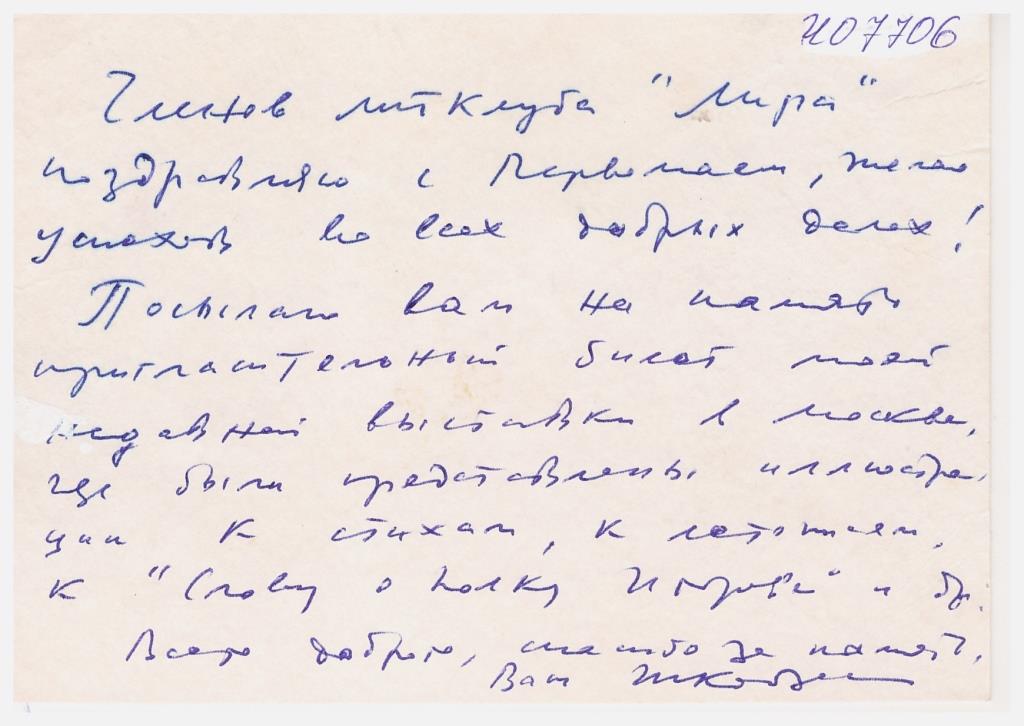 И07706
Членов литклуба "Лира"
поздравляю с Первомаем, желаю
успехов во всех добрых делах!
Посылаю вам на память
пригласительный билет моей
недавней выставки в Москве,
где были представлены иллюстра-
ции к стихам, к летописям,
к "Слову о полку Игореве" и др.
Всего доброго, спасибо за память.
Ваш